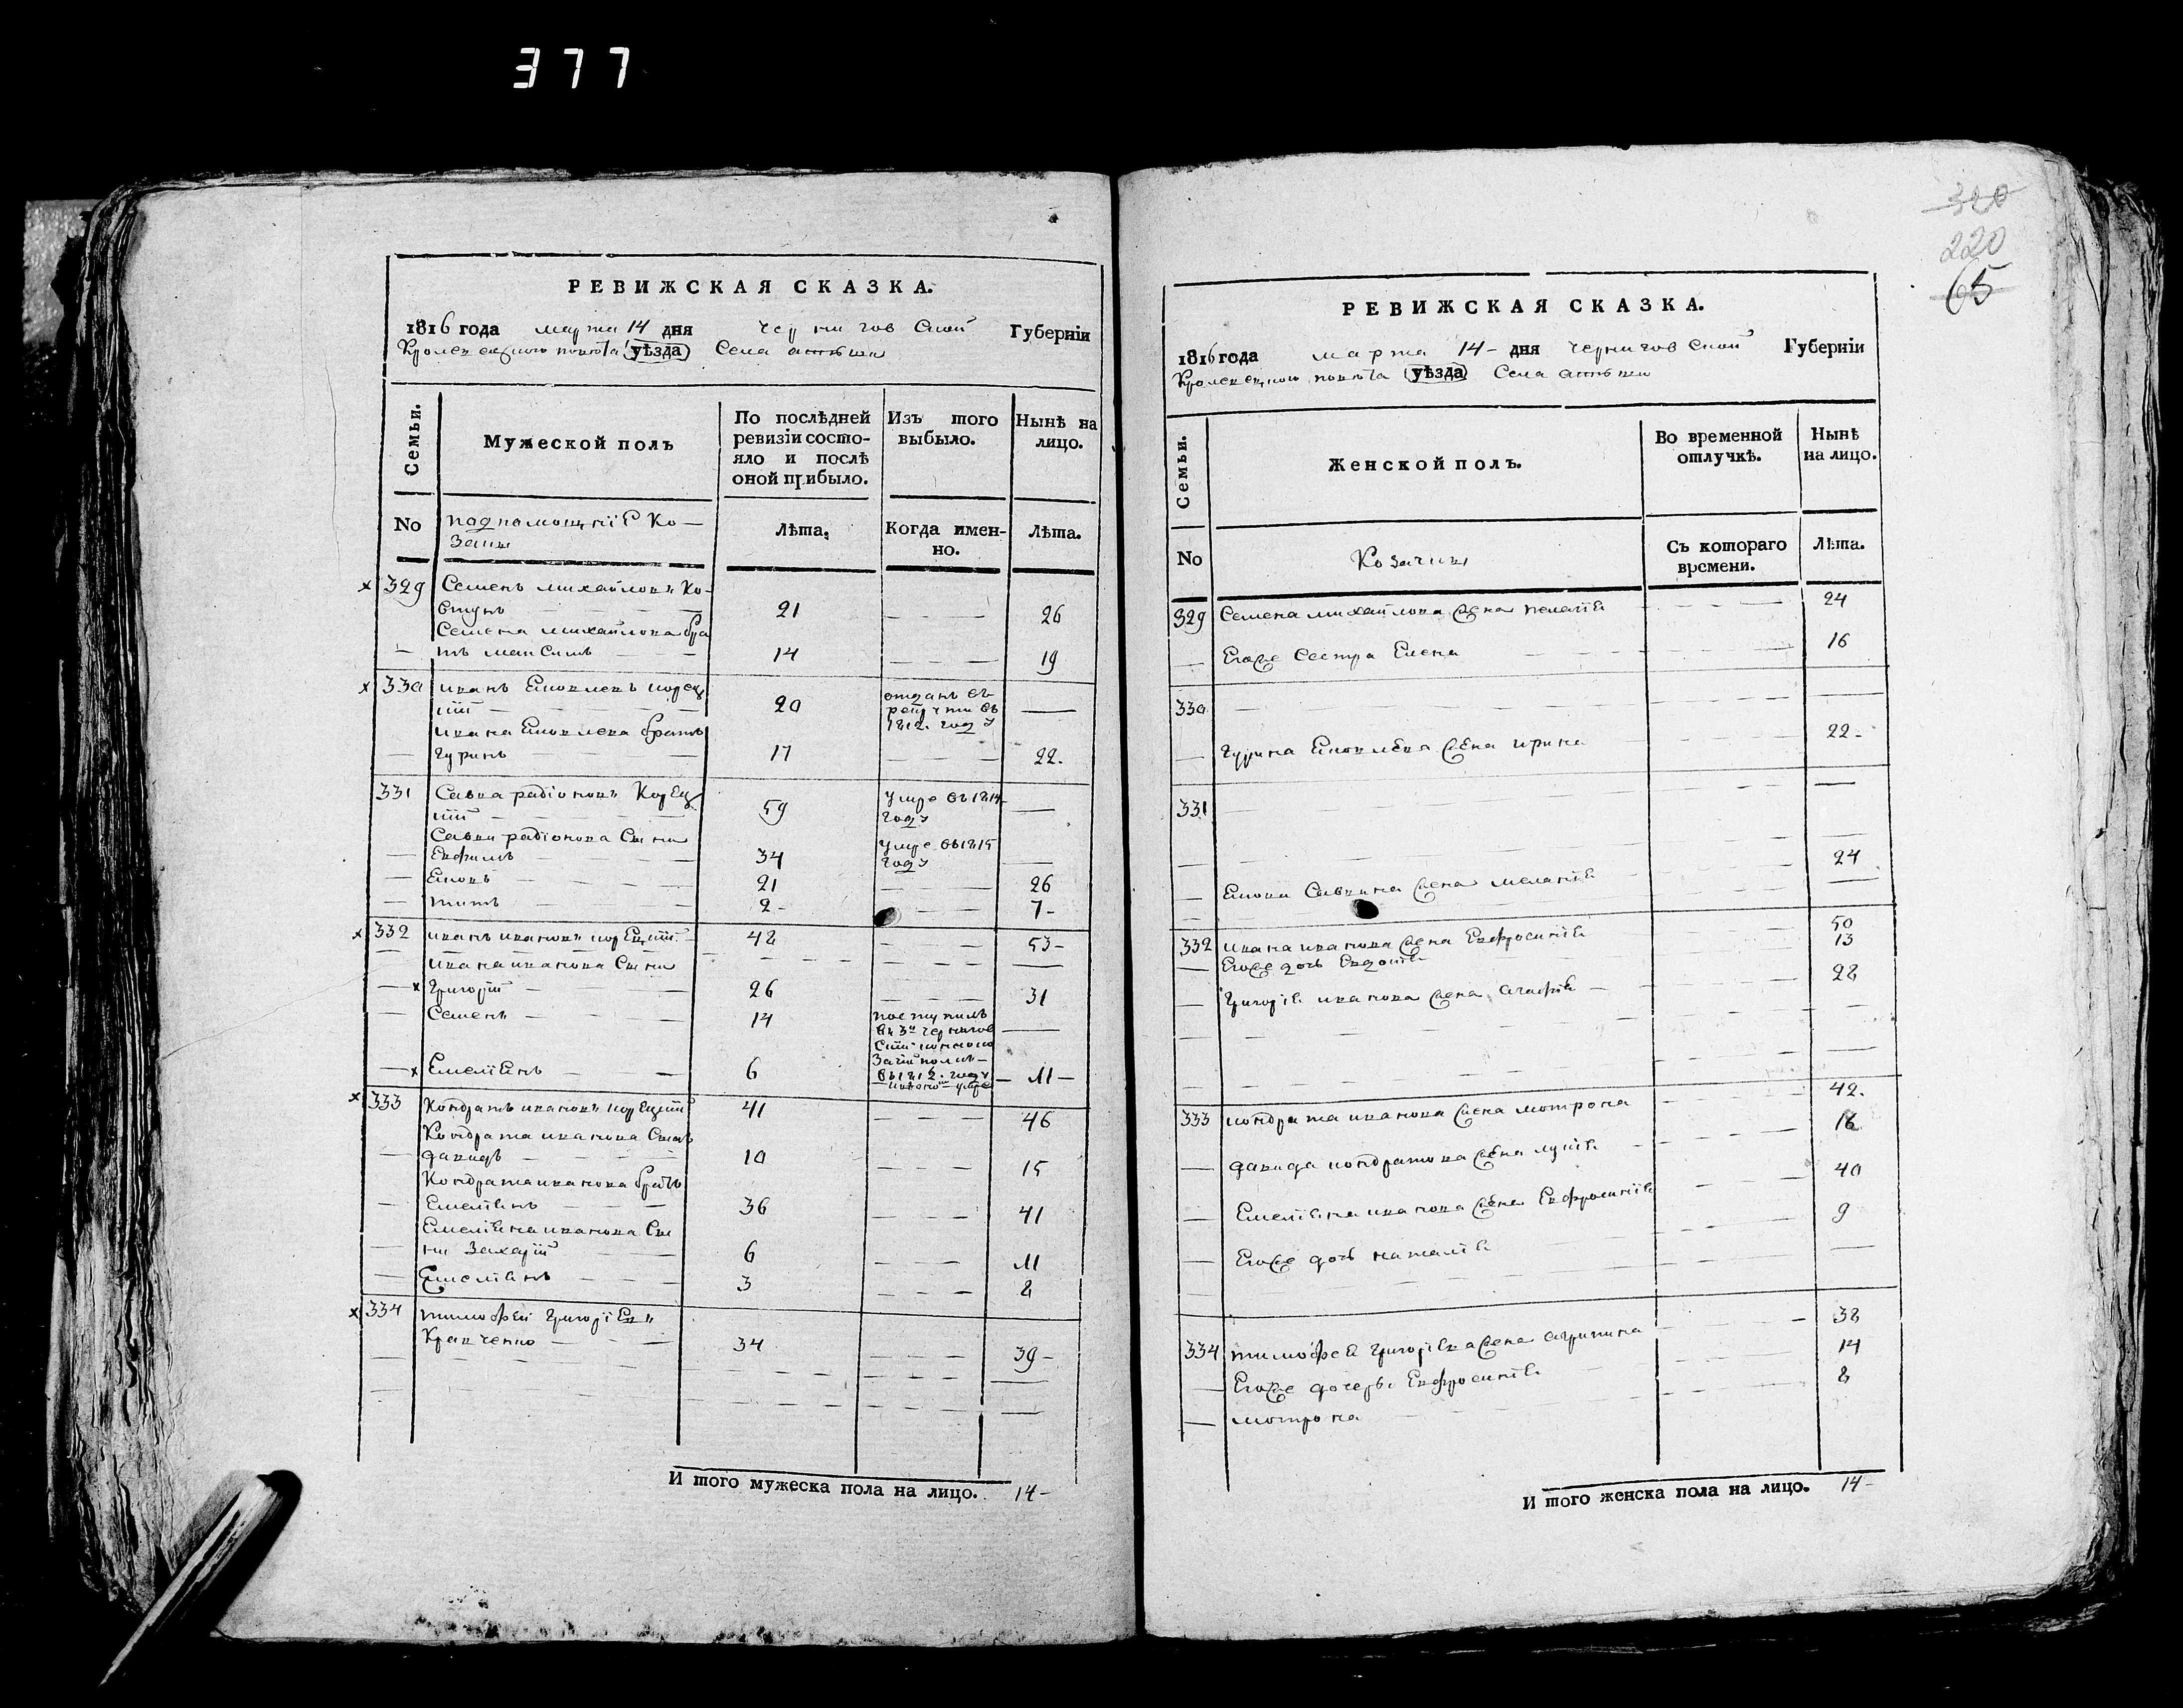 377
РЕВИЖСКАЯ СКАЗКА.
1816 года марта 14 дня Черниговской Губерніи
Кролевецкого повѣта уѣзда Села
Семьи.
Мужеской полъ
По послѣдней ревизіи состо-
яло и послѣ оной прибыло.
Изъ того выбыло.
Нынѣ на лицо.
No
подпомощніе Ко-
заки
Лѣта.
Когда имен-
но.
Лѣта.
329 Семенъ михайловъ Ко-
стунъ 21 26
Семена михайлова бра
тъ максимъ 14 19
330 иванъ Яковлевъ корец
кій 20 отданъ въ рекруты въ 1812 году
ивана Яковлева братъ
гуринъ 17 22
331 Савка радіоновъ Корец
кій 59 умре въ 1814 году
Савки радіонова Сыны
Евфимъ 34 умре въ 1815 году
Яковъ 21 26
титъ 2 7
332 иванъ ивановъ корецкій 48 53
ивана иванова Сыны
Григорій 26 31
Семенъ 14 поступилъ въ 3й Чернигов
Скій конной козачій полкъ
въ 1812 году
Емеліянъ 6 11
333 Кондратъ ивановъ корецкій 41 46
Кондрата иванова Сынъ
давидъ 10 15
Кондрата иванова братъ
Емеліянъ 36 41
Емеліяна иванова Сы
ны Захарій 6 11
Емеліянъ 3 8
334 тимофей Григоріевъ
Кравченко 34 39
И того мужеска пола на лицо. 14
320
220
65
РЕВИЖСКАЯ СКАЗКА.
1816 года марта 14 дня Черниговской Губерніи
Кролевецкого повѣта уѣзда Села
Семьи.
Женской полъ.
Во временной отлучкѣ.
Нынѣ на лицо.
No
Козачки
Съ котораго времени.
Лѣта.
329 Семена михайлова жена пелагія 24
Егоже Сестра Елена 16
330
гурина Яковлева жена ирина 22
331
Якова Савкина жена меланія 24
332 ивана иванова жена Евфросинія 50
Егоже дочь Евдокія 13
Григорія иванова жена агафія 28
333 кондрата иванова жена мотрона 42
давида кондратова жена лукія 18
Емеліяна иванова жена Евфросинія 40
Егоже дочь наталія 9
334 тимофея Григоріева жена агрипина 38
Егоже дочеры Евфросинія 14
мотрона 8
И того женска пола на лицо. 14